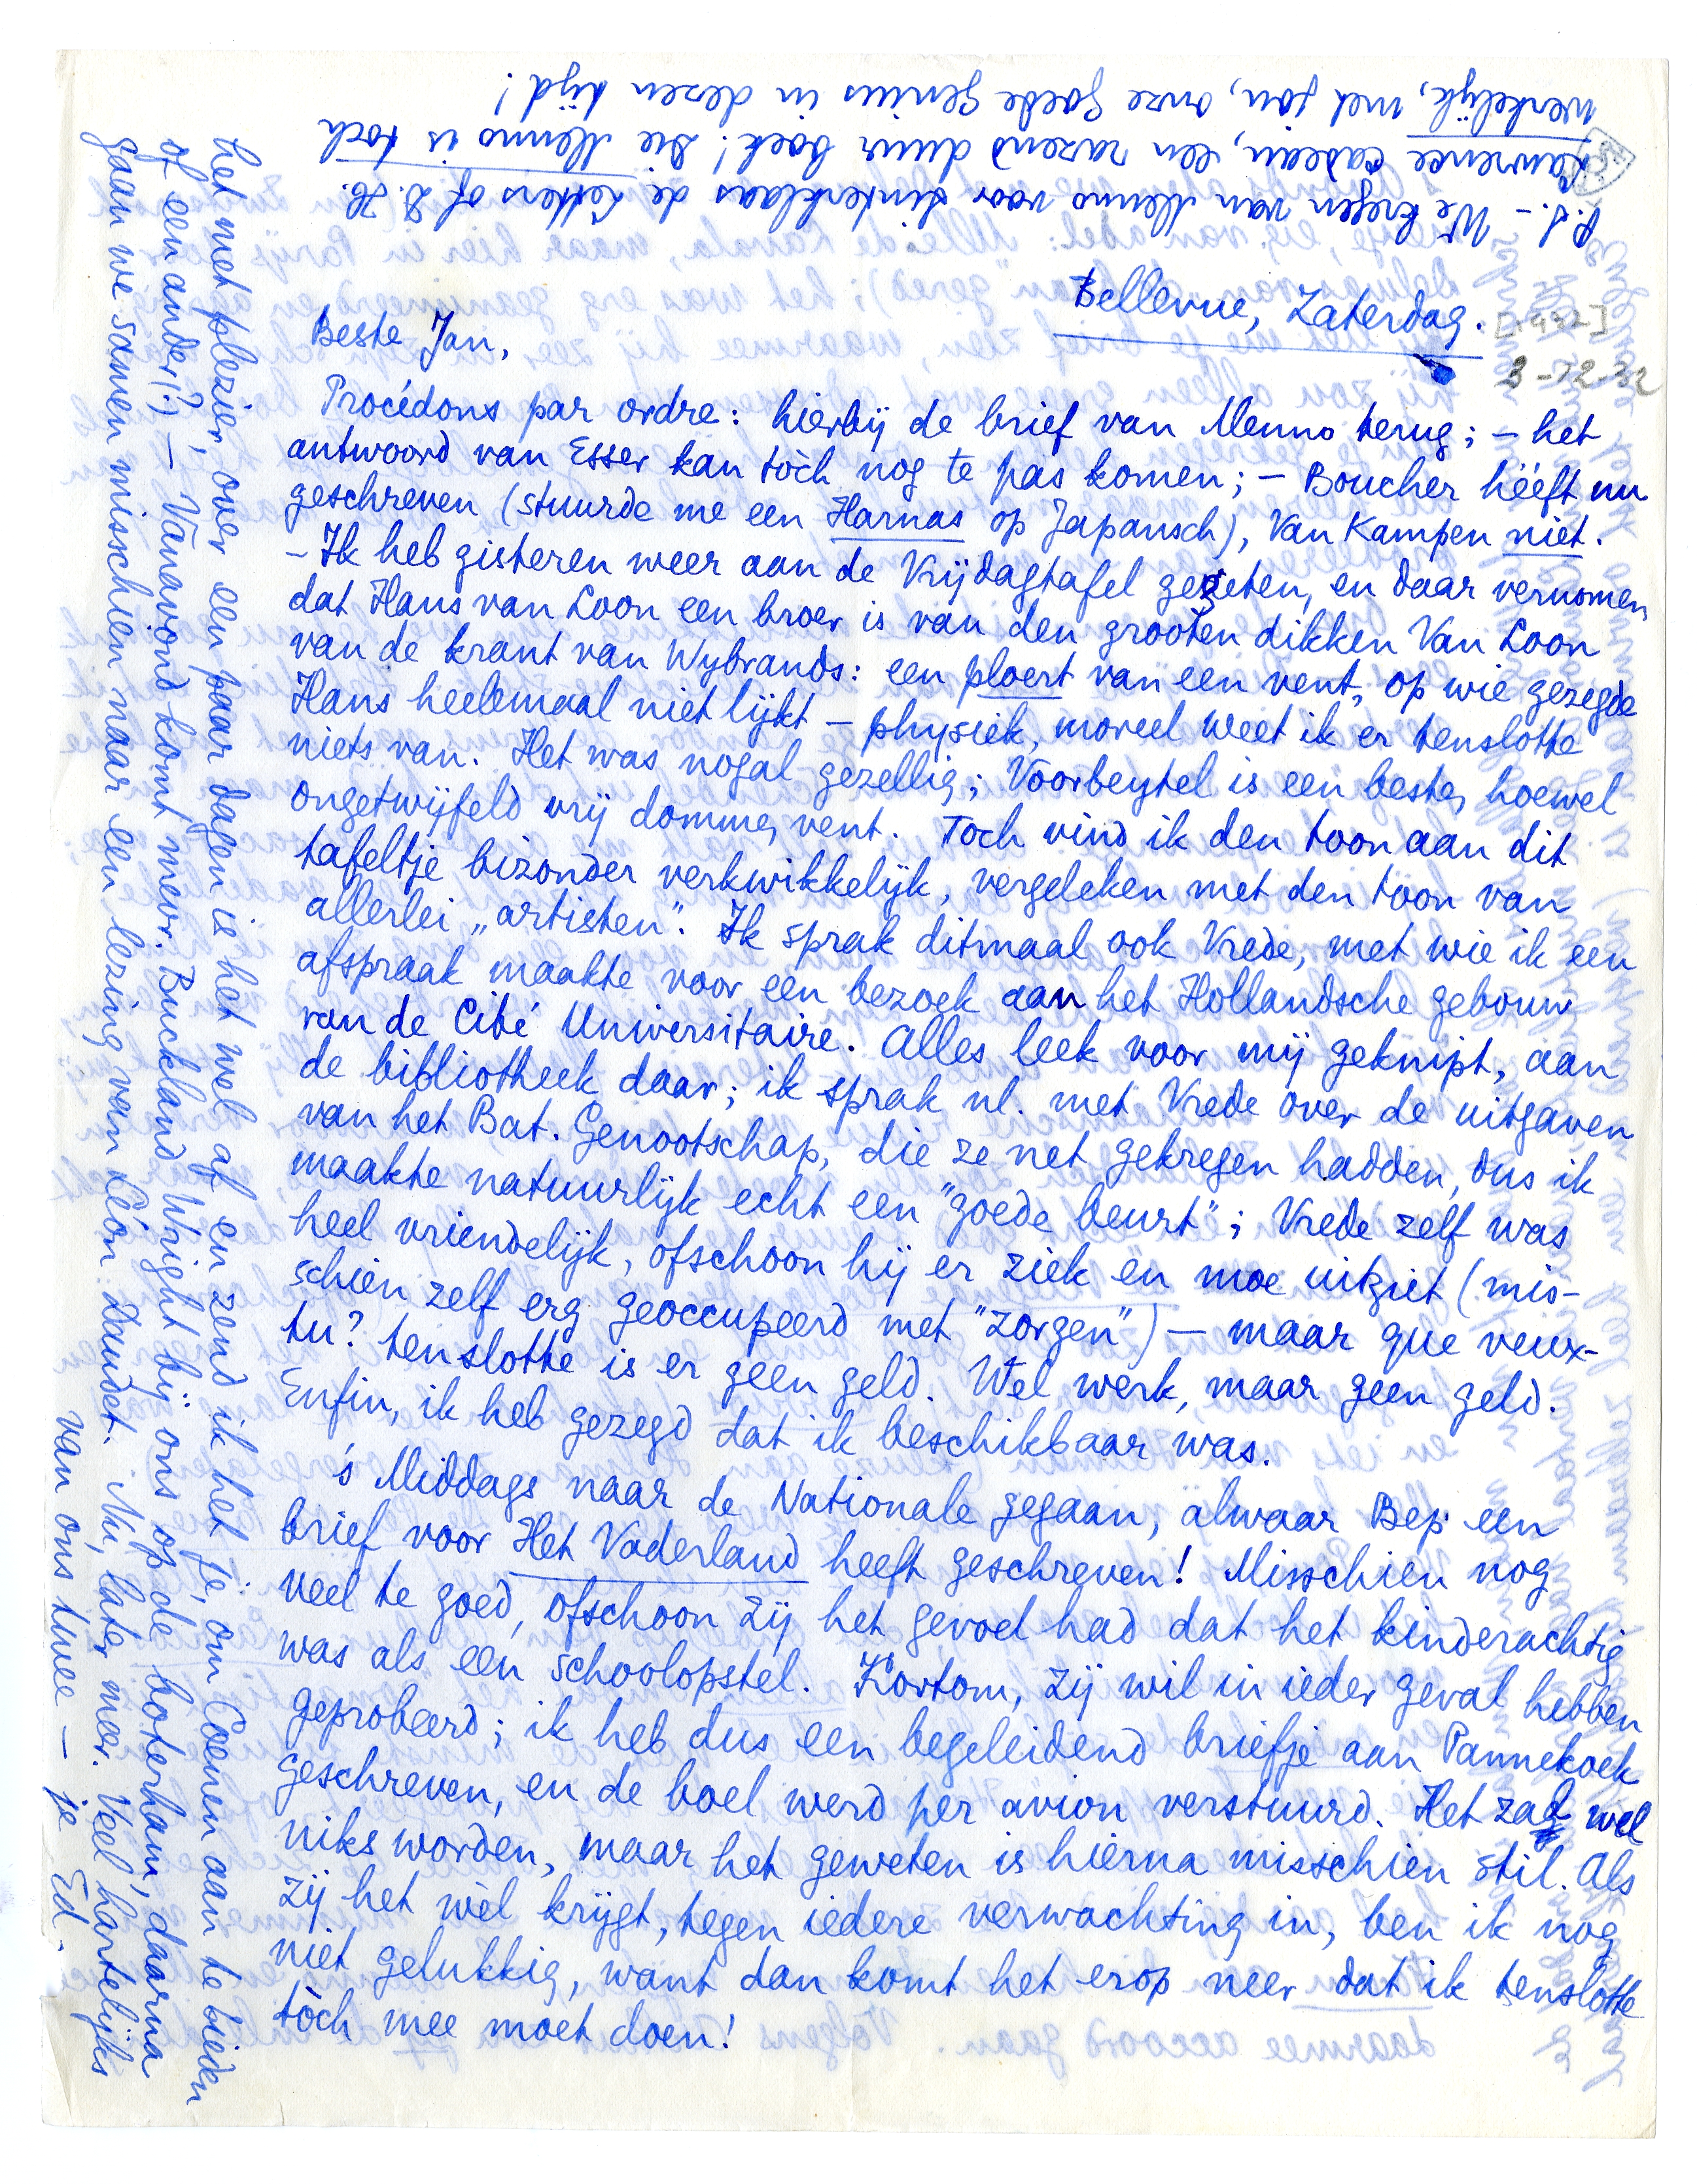 Bellevue, Zaterdag.
[1932]
3-12-32
Beste Jan,
Procédons par ordre: hierbij de brief van Menno terug; – het
antwoord van Esser kan tòch nog te pas komen; – Boucher hééft nu
geschreven (stuurde me een Harnas op Japansch), Van Kampen niet.
– Ik heb gisteren weer aan de Vrijdagtafel gezeten, en daar vernomen
dat Hans van Loon een broer is van den grooten dikken Van Loon
van de krant van Wybrands: een ploert van een vent, op wie gezegde
Hans heelemaal niet lijkt – physiek, moreel weet ik er tenslotte
niets van. Het was nogal gezellig; Voorbeytel is een beste, hoewel
ongetwijfeld vrij domme, vent. Toch vind ik den toon aan dit
tafeltje bizonder verkwikkelijk, vergeleken met den toon van
allerlei „artisten". Ik sprak ditmaal ook Vrede, met wie ik een
afspraak maakte voor een bezoek aan het Hollandsche gebouw
van de Cité Universitaire. Alles leek voor mij geknipt, aan
de bibliotheek daar; ik sprak nl. met Vrede over de uitgaven
van het Bat. Genootschap, die ze net gekregen hadden, dus ik
maakte natuurlijk echt een "goede beurt"; Vrede zelf was
heel vriendelijk, ofschoon hij er ziek en moe uitziet (mis-
schien zelf erg geoccupeerd met "zorgen") – maar que veux-
tu? tenslotte is er geen geld. Wel werk, maar geen geld.
Enfin, ik heb gezegd dat ik beschikbaar was.
's Middags naar de Nationale gegaan, alwaar Bep een
brief voor Het Vaderland heeft geschreven! Misschien nog
veel te goed, ofschoon zij het gevoel had dat het kinderachtig
was als een schoolopstel. Kortom, zij wil in ieder geval hebben
geprobeerd; ik heb dus een begeleidend briefje aan Pannekoek
geschreven, en de boel werd per avion verstuurd. Het zal wel
niks worden, maar het geweten is hierna misschien stil. Als
zij het wèl krijgt, tegen iedere verwachting in, ben ik nog
niet gelukkig, want dan komt het erop neer dat ik tenslotte
tòch mee moet doen!
het met plezier, over een paar dagen is het wel af en zend ik het je, om Coenen aan te bieden
of een ander!?) – Vanavond komt mevr. Buckland Wright bij ons op de boterham, daarna
gaan we samen misschien naar een lezing van Léon Daudet. Nu, later meer. Veel hartelijks
van ons twee – je Ed.
P.S. – We kregen van Menno voor Sinterklaas de Letters of D.H.
Lawrence cadeau, een razend duur boek! Die Menno is toch
werkelijk, met jou, onze goede genius in dezen tijd!